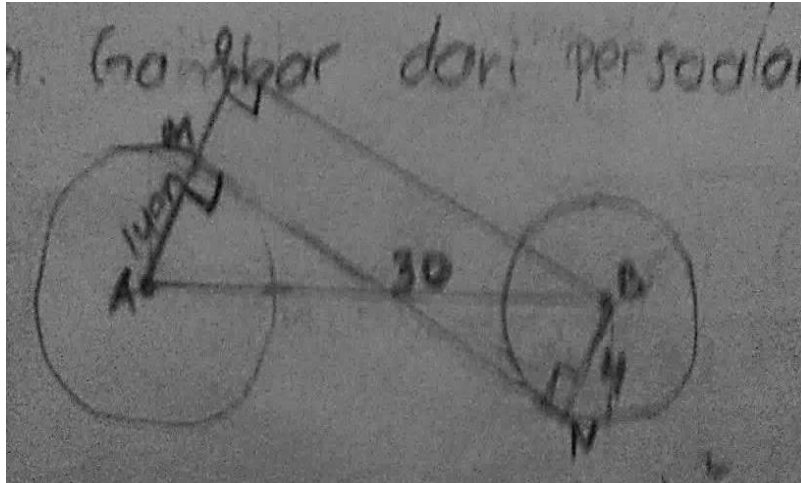 a. Gambar dari persoalan
M
14cm
A
30
B
4
N